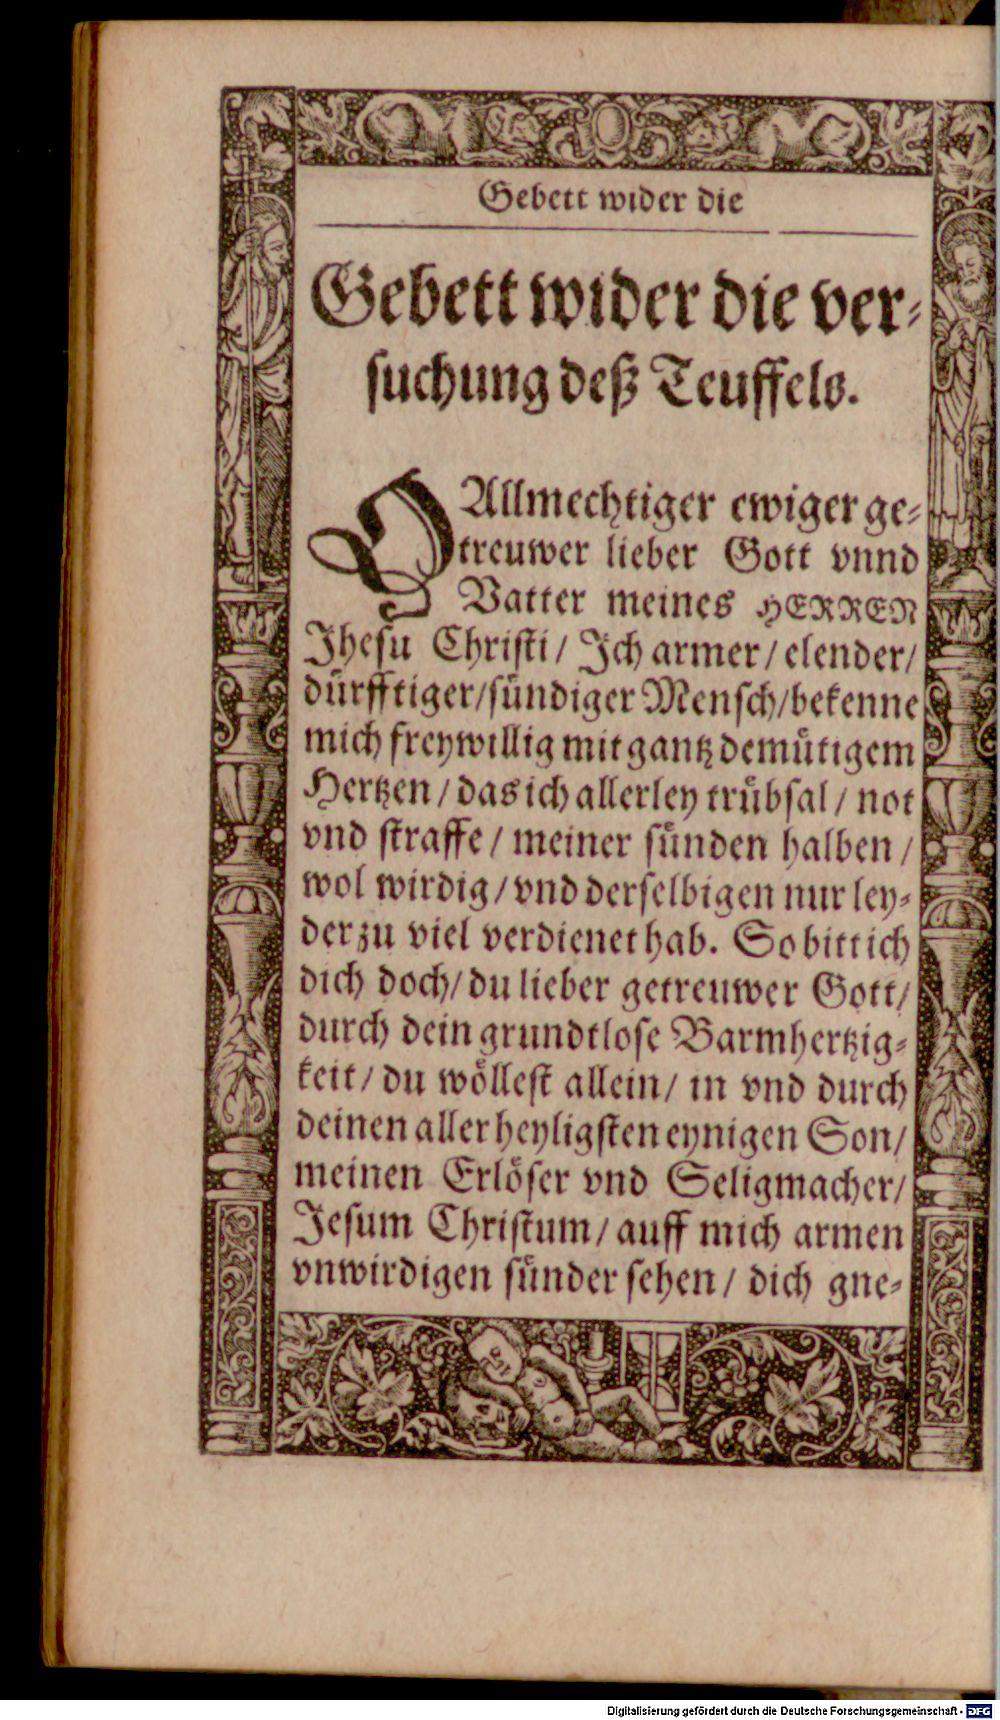 Gebett wider die
Gebett wider die ver-
suchung deß Teuffels.
O Allmechtiger ewiger ge-
treuwer lieber Gott vnnd
Vatter meines HERREN
Jhesu Christi / Jch armer / elender /
dürfftiger / sündiger Mensch / bekenne
mich freywillig mit gantz demütigem
Hertzen / das ich allerley trübsal / not
vnd straffe / meiner sünden halben /
wol wirdig / vnd derselbigen nur ley-
der zu viel verdienet hab. So bitt ich
dich doch / du lieber getreuwer Gott /
durch dein grundtlose Barmhertzig-
keit / du wöllest allein / in vnd durch
deinen allerheyligsten eynigen Son /
meinen Erlöser vnd Seligmacher /
Jesum Christum / auff mich armen
vnwirdigen sünder sehen / dich gne-
Digitalisierung gefördert durch die Deutsche Forschungsgemeinschaft - DFG